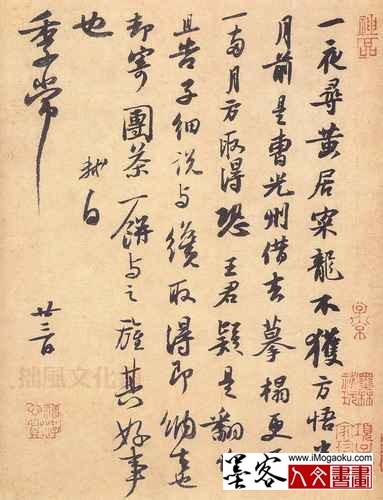 一夜尋黄居寀龍不獲方悟半
月前是曹光州借去摹榻更
一兩月方取得恐王君疑是翻悔
且告子細説與纔取得即納去也
却寄團茶一餅與之旌其好事
也
軾白
季常
廿三日
神品
拙風文化網
墨客
www.iMogaoku.com
人文書畫